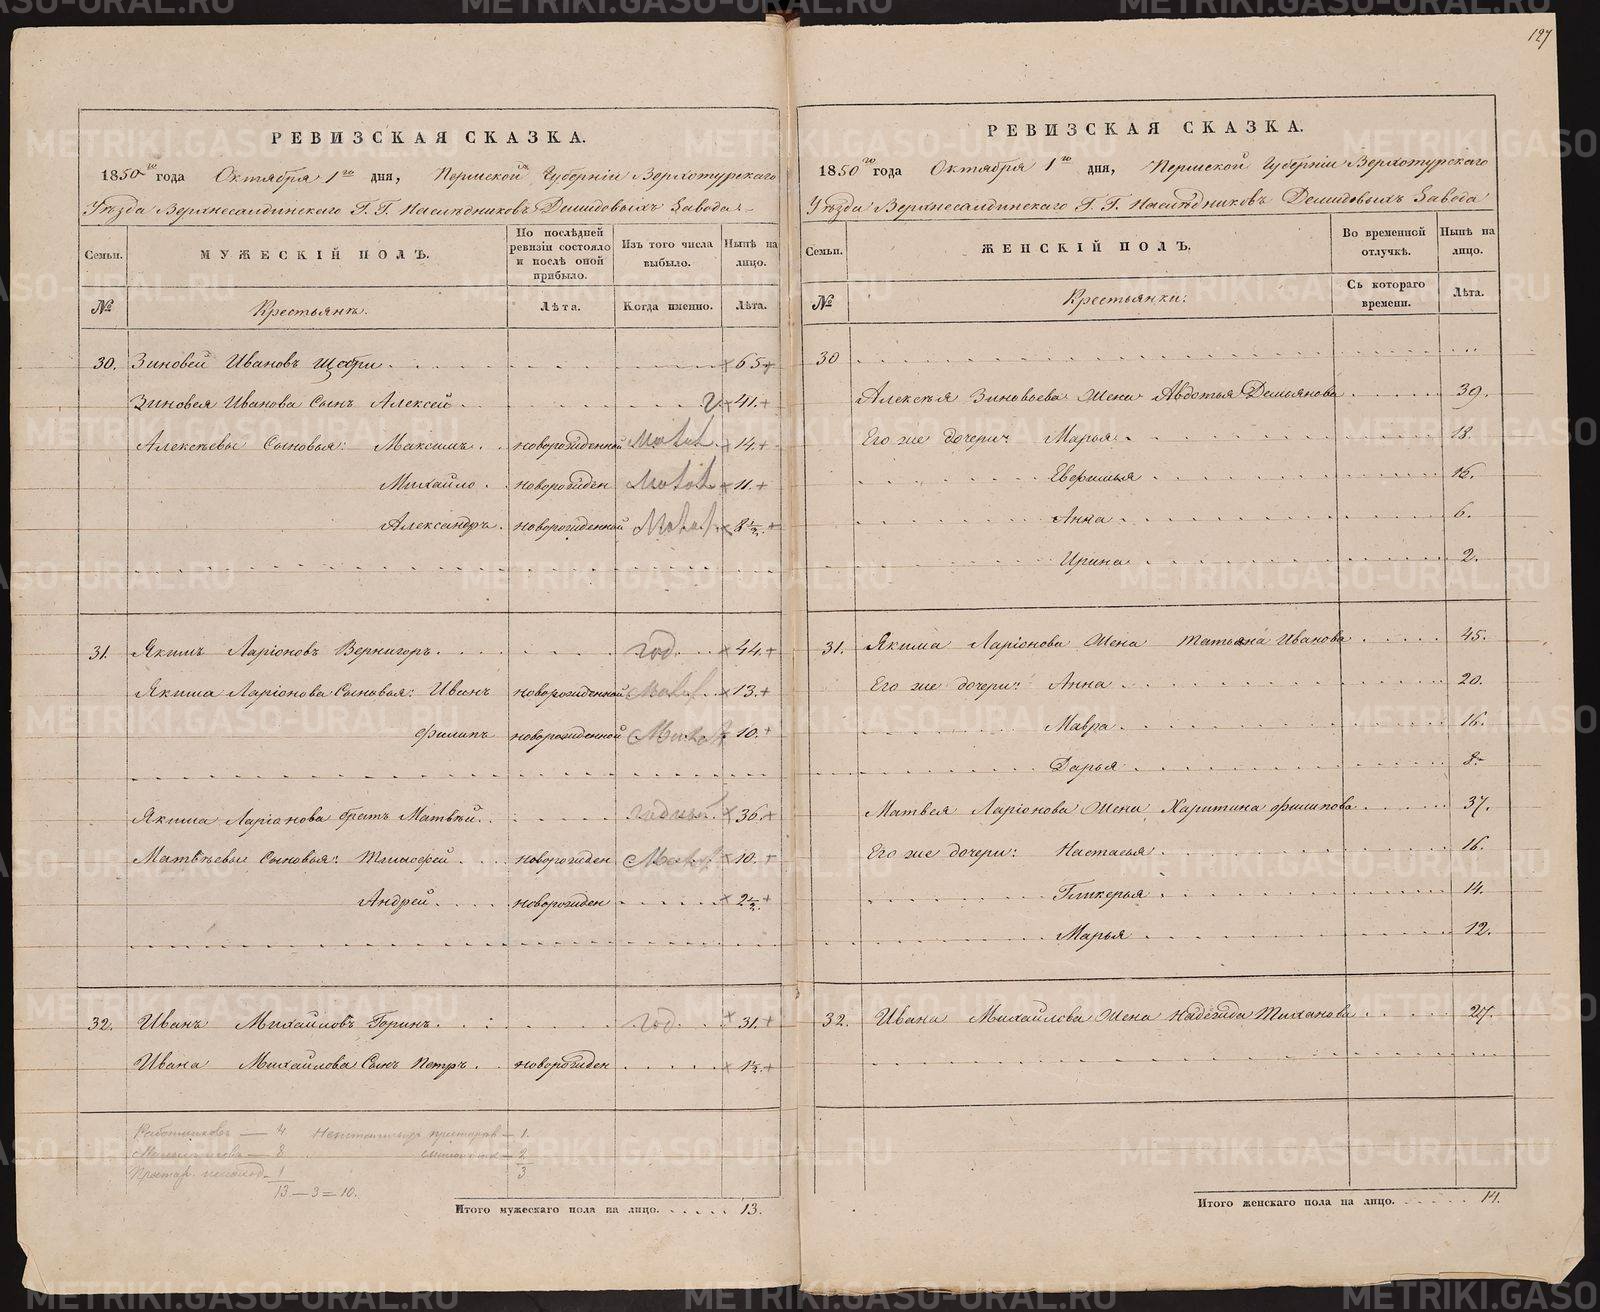 127
РЕВИЗСКАЯ СКАЗКА.
1850 го года Октября 1 го дня, Пермской Губерніи Верхотурскаго
Уѣзда Верхнесалдинскаго Г. Г. Наслѣдниковъ Демидовыхъ Завода
Семьи. МУЖЕСКІЙ ПОЛЪ. По послѣдней ревизіи состояло и послѣ оной прибыло. Изъ того числа выбыло. Нынѣ на лицо.
№ Крестьянъ. Лѣта. Когда именно. Лѣта.
30. Зиновей Ивановъ 65
Зиновея Иванова Сынъ Алексей 41.
Алексѣевы Сыновья: Максимъ новорожденной 14
Михайло новорожден 11.
Александръ новорожденной 8 1/2
31. Якимъ Ларіоновъ Вернигоръ год. 44.
Якима Ларіонова Сыновья: Иванъ новорожденной 13.
Филипъ новорожденной 10.
Якима Ларіонова братъ Матвѣй годный 36.
Матвѣевы Сыновья: Тимофей новорожден 10.
Андрей новорожден 2 1/2
32. Иванъ Михайловъ Горинъ год. 31.
Ивана Михайлова Сынъ Петръ новорожден 1/2
Работниковъ — 4 — 1.
— 8 — 2
1 3
13 — 3 = 10.
Итого мужескаго пола на лицо. 13.
РЕВИЗСКАЯ СКАЗКА.
1850 го года Октября 1 го дня, Пермской Губерніи Верхотурскаго
Уѣзда Верхнесалдинскаго Г. Г. Наслѣдниковъ Демидовыхъ Завода
Семьи. ЖЕНСКІЙ ПОЛЪ. Во временной отлучкѣ. Нынѣ на лицо.
№ Крестьянки: Съ котораго времени. Лѣта.
30
Алексѣя Зиновьева Жена Авдотья Демьянова 39.
Его же дочери: Марья 18.
15.
Анна 6.
Ирина 2.
31. Якима Ларіонова Жена Татьяна Иванова 45.
Его же дочери: Анна 20.
Мавра 16.
Дарья 8.
Матвея Ларіонова Жена Харитина Филипова 37.
Его же дочери: Настасья 16.
Гликерья 14.
Марья 12.
32. Ивана Михайлова Жена Надежда Тиханова 27.
Итого женскаго пола на лицо. 14.
METRIKI.GASO-URAL.RU